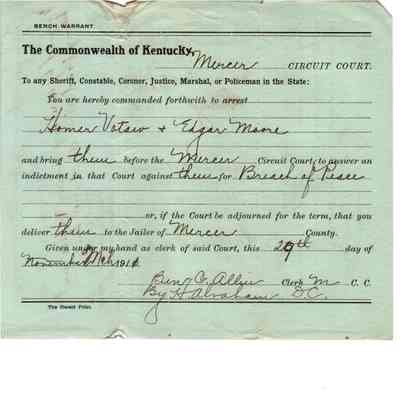 BENCH WARRANT.
The Commonwealth of Kentucky,
Mercer CIRCUIT COURT.
To any Sheriff, Constable, Coroner, Justice, Marshal, or Policeman in the State:
You are hereby commanded forthwith to arrest
Homer Votaw & Edgar Moore
and bring them before the Mercer Circuit Court, to answer an
indictment in that Court against them for Breach of Peace
or, if the Court be adjourned for the term, that you
deliver them to the Jailer of Mercer County.
Given under my hand as clerk of said Court, this 29th day of
November Mch 191
Ben C. Allin Clerk M C. C.
By H Abraham D.C.